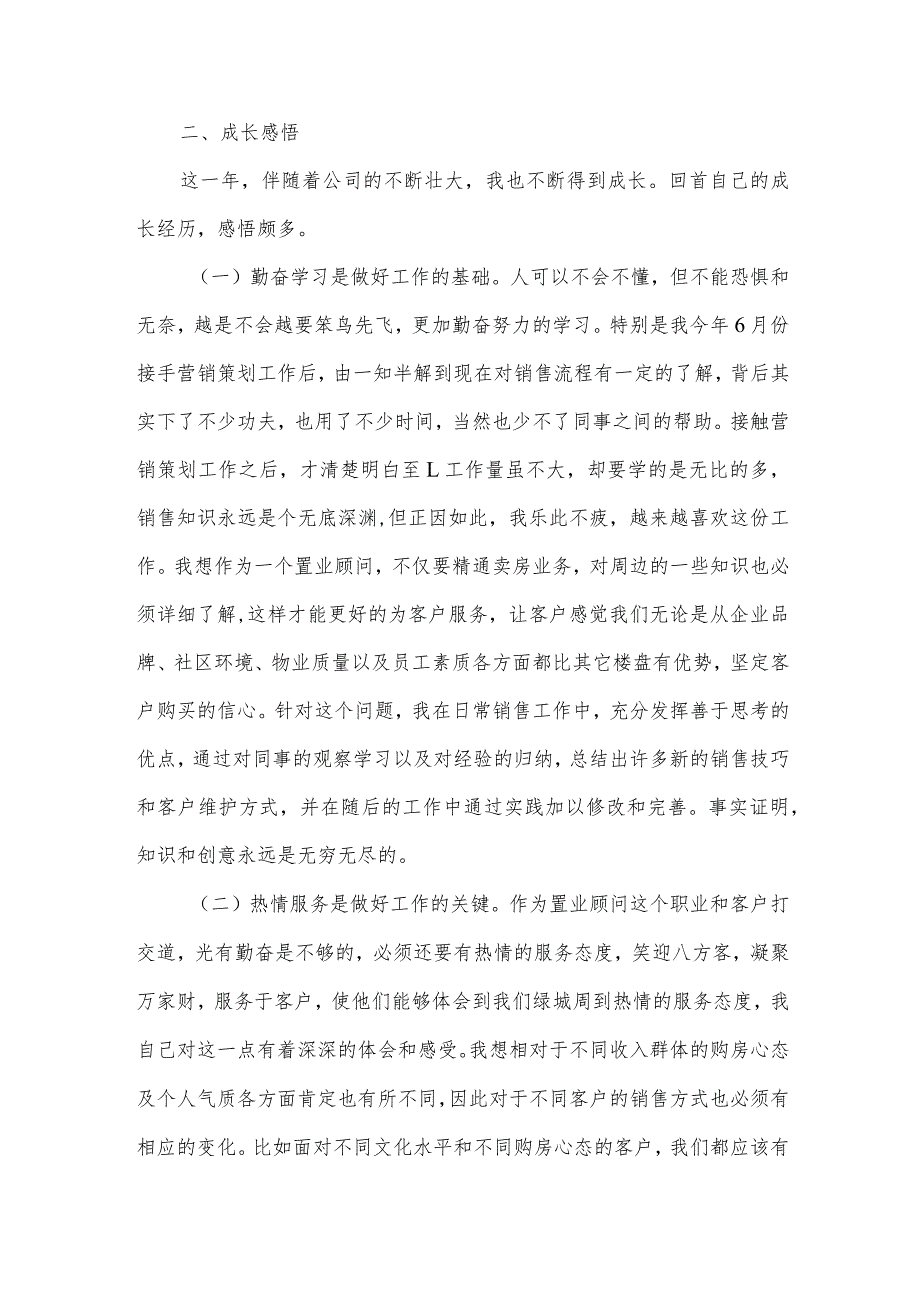 二、成长感悟
这一年，伴随着公司的不断壮大，我也不断得到成长。回首自己的成
长经历，感悟颇多。
（一）勤奋学习是做好工作的基础。人可以不会不懂，但不能恐惧和
无奈，越是不会越要笨鸟先飞，更加勤奋努力的学习。特别是我今年 6 月份
接手营销策划工作后，由一知半解到现在对销售流程有一定的了解，背后其
实下了不少功夫，也用了不少时间，当然也少不了同事之间的帮助。接触营
销策划工作之后，才清楚明白至 L 工作量虽不大，却要学的是无比的多，
销售知识永远是个无底深渊,但正因如此，我乐此不疲，越来越喜欢这份工
作。我想作为一个置业顾问，不仅要精通卖房业务，对周边的一些知识也必
须详细了解,这样才能更好的为客户服务，让客户感觉我们无论是从企业品
牌、社区环境、物业质量以及员工素质各方面都比其它楼盘有优势，坚定客
户购买的信心。针对这个问题，我在日常销售工作中，充分发挥善于思考的
优点，通过对同事的观察学习以及对经验的归纳，总结出许多新的销售技巧
和客户维护方式，并在随后的工作中通过实践加以修改和完善。事实证明，
知识和创意永远是无穷无尽的。
（二）热情服务是做好工作的关键。作为置业顾问这个职业和客户打
交道，光有勤奋是不够的，必须还要有热情的服务态度，笑迎八方客，凝聚
万家财，服务于客户，使他们能够体会到我们绿城周到热情的服务态度，我
自己对这一点有着深深的体会和感受。我想相对于不同收入群体的购房心态
及个人气质各方面肯定也有所不同,因此对于不同客户的销售方式也必须有
相应的变化。比如面对不同文化水平和不同购房心态的客户，我们都应该有